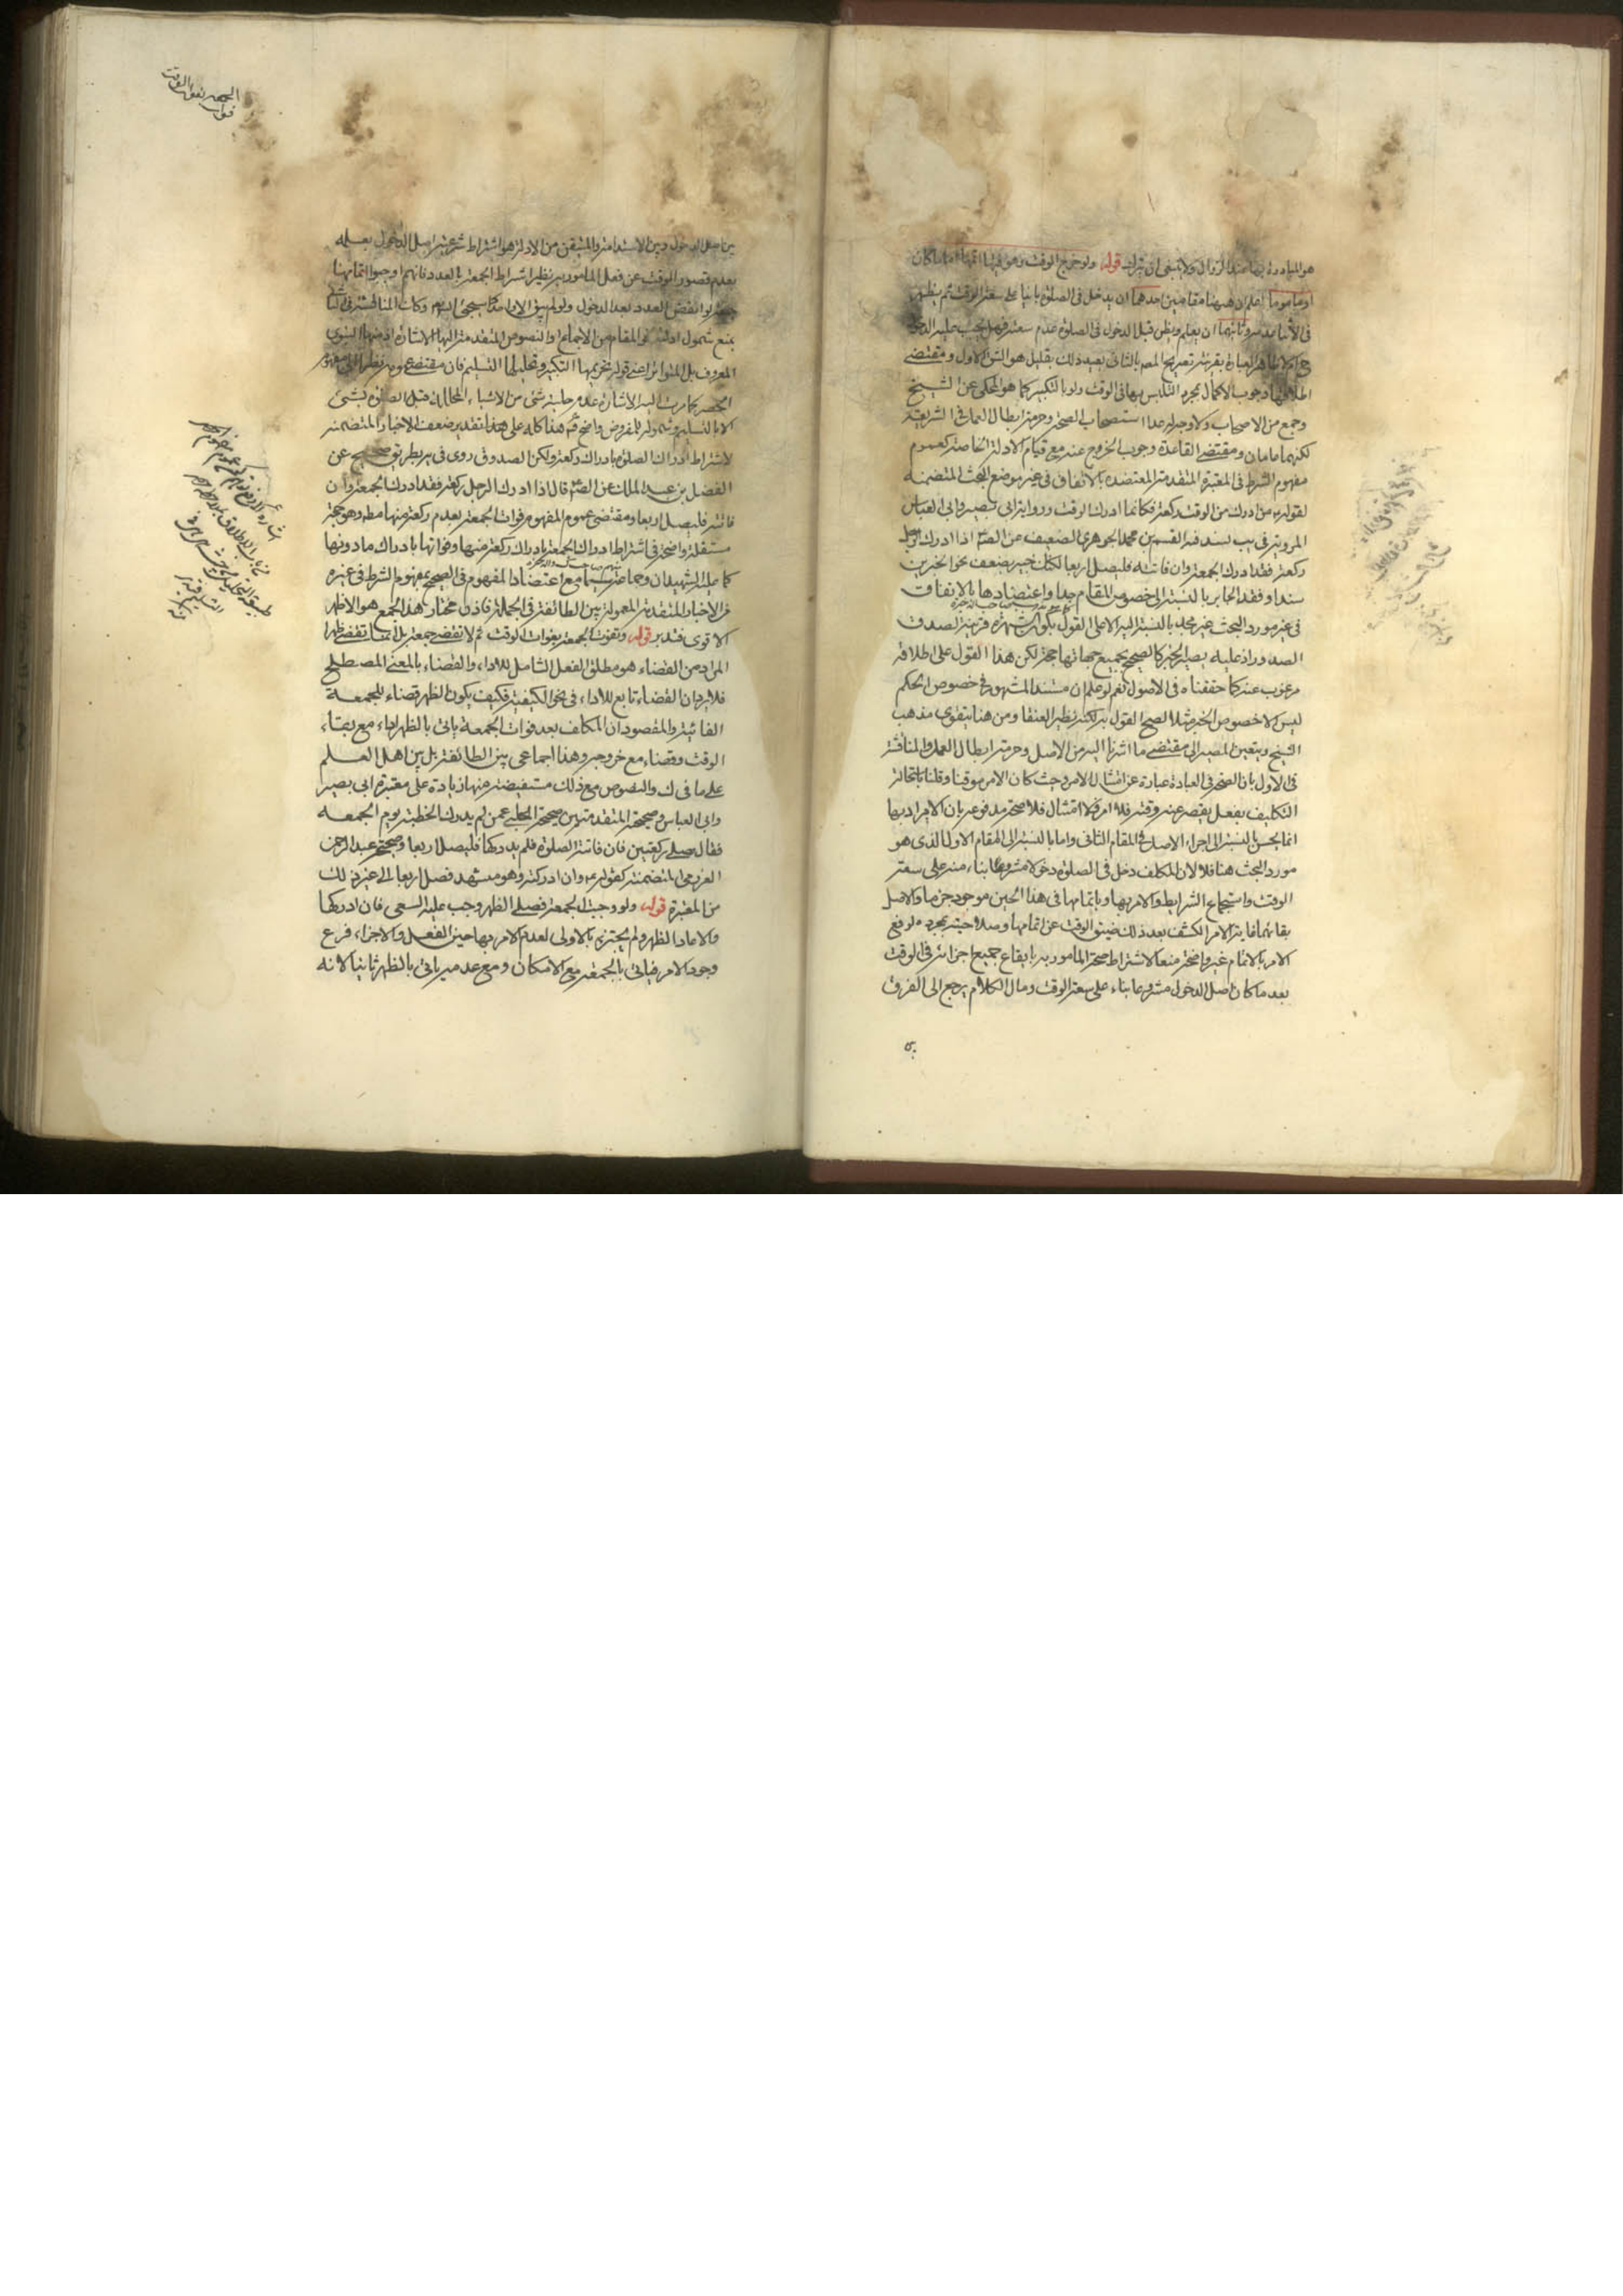 هو المبادرة بها عند الزوال ولا ينبغى ان يترك قوله ولو خرج الوقت وهو فيها اتمها اماما كان
او ماموما اعلم ان هيهنا مقامين احدهما ان يدخل فى الصلوة بانيا على سعة الوقت ثم يظهر
فى الأثناء عدمه وثانيهما ان يعلم ويظن قبل الدخول فى الصلوة عدم سعته فهل يجب عليه الدخول
ح ام لا ظاهر العبارة بقرينة تصريح المصـ بالثانى بعيد ذلك بقليل هو الشق الاول ومقتضى
اطلاقها وجوب الاكمال بمجرد التلبس بها فى الوقت ولو بالتكبير كما هو المحكى عن الشيخ
وجمع من الاصحاب ولا وجه له عدا استصحاب الصحة وحرمة ابطال العمل فى الشريعة
لكنهما ومقتضى القاعدة وجوب الخروج عنه مع قيام الادلة الخاصة كعموم
مفهوم الشرط فى المعتبرة المتقدمة المعتضدة بالاتفاق فى غير موضع البحث المتضمنة
لقوله من ادرك من الوقت ركعة فكانما ادرك الوقت ورواية ابى بصير وابى العباس
المروية فى يب بسند فيه القسم بن محمد الجوهرى الضعيف عن الصـ اذا ادرك الرجل
ركعة فقد ادرك الجمعة وان فاتته فليصل اربعا لكنك خبير بضعف نحو الخبرين
سندا وفقد الجابر بالنسبة الى خصوص المقام جدا واعتضادها بالاتفاق
فى غير مورد البحث غير مجد بالنسبة اليه الا على القول بكون الشهرة قرينة لصدق
الصدور اذ عليه يصير الخبر كالصحيح بجميع جهاتها حجة لكن هذا القول على اطلاقه
مرغوب عنه كما حققناه فى الاصول نعم لو علم ان مستند المشهور فى خصوص الحكم
ليس الا خصوص الخبر مثلا لصح القول به لكنه نظير العنقا ومن هنا يتقوى مذهب
الشيخ ويتعين المصير الى مقتضى ما اشرنا اليه من الاصل وحرمة ابطال العمل والمناقشة
فى الاول بان الصحة فى العبادة عبارة عن امتثال الامر وحيث كان الامر موقتا وقلنا باستحالة
التكليف بفعل يقصر عنه وقته فلا امر فلا امتثال فلا صحة مدفوعة بان الايراد بها
انما يحسن بالنسبة الى اجراء الاصل فى المقام الثانى واما بالنسبة الى المقام الاول الذى هو
مورد البحث هنا فلا لان المكلف دخل فى الصلوة دخولا مشروعا بناء منه على سعة
الوقت واستجماع الشرايط والامر بها وباتمامها فى هذا الحين موجود جزما والاصل
بقائهما غاية الامر انكشف بعد ذلك ضيق الوقت عن اتمامها وصلاحيته بمجرده لرفع
الامر بالاتمام غير واضحة منعا لاشتراط صحة المامور به بايقاع جميع اجزائه فى الوقت
بعد ما كان اصل الدخول مشروعا بناء على سعة الوقت ومال الكلام يرجع الى الفرق
بين اصل الدخول وبين الاستدامة والمتيقن من الادلة هو اشتراط شرعية اصل الدخول بعلمه
بعدم قصور الوقت عن فعل المامور به نظير اشتراط الجمعة بالعدد فانهم اوجبوا اتمامها
جمعة لو انفض العدد بعد الدخول ولو لم يبق الا واحد كما سيجئ اليه وكانت المناقشة فى الثانى
بمنع شمول ادلته نحو المقام من الاجماع والنصوص المتقدمة اليها الاشارة اذ منها النبوى
المعروف بل المتواتر اعنى قوله تحريمها التكبير وتحليلها التسليم فان مقتضى عمومه نظرا الى مفهوم
الحصر كما مرت اليه الاشارة عدم حلية شئ من الاشياء المحللة قبل الصلوة بشئ
الا بالتسليم وشموله للمفروض واضح ثم هذا كله على تقدير ضعف الاخبار المتضمنة
لاشتراط ادراك الصلوة بادراك ركعة ولكن الصدوق روى فى يه بطريق صحيح عن
الفضل بن عبد الملك عن الصـ قال اذا ادرك الرجل ركعة فقد ادرك الجمعة وان
فاتته فليصل اربعا ومقتضى عموم المفهوم فوات الجمعة بعدم ركعة منها مطـ وهو حجة
مستقلة واضحة فى اشتراط ادراك الجمعة بادراك ركعة منها وفواتها بادراك ما دونها
كما عليه الشهيدان وجماعة سيما مع اعتضاد المفهوم فى الصحيح بمفهوم الشرط فى غيره
من الاخبار المتقدمة المعمولة بين الطائفة فى الجملة فاذن مختار هذا الجمع هو الاظهر
الاقوى فتدبر قوله وتفوت الجمعة بفوات الوقت ثم لا تقضى جمعة بل انما تقضى ظهرا
المراد من القضاء هو مطلق الفعل الشامل للاداء والقضاء بالمعنى المصطلح
فلا يرد ان القضاء تابع للاداء فى نحو الكيفية فكيف يكون الظهر قضاء للجمعة
الفائتة والمقصود ان المكلف بعد فوات الجمعة ياتى بالظهر اداء مع بقاء
الوقت وقضاء مع خروجه وهذا اجماعى بين الطائفة بل بين اهل العلم
على ما فى ك والنصوص مع ذلك مستفيضة منها زيادة على معتبرة ابى بصير
وابى العباس وصحيحة المتقدمتين صحيحة الحلبى عمن لم يدرك الخطبة يوم الجمعة
فقال يصلى ركعتين فان فاتته الصلوة فلم يدركها فليصل اربعا وصحيحة عبد الرحمن
العزرمى المتضمنة كقوله وان ادركته وهو متشهد فصل اربعا الى غير ذلك
من المعتبرة قوله ولو وجبت الجمعة فصلى الظهر وجب عليه السعى فان ادركها
والا اعاد الظهر ولم يجتزء بالاولى لعدم الامر بها حين الفعل والاجزاء فرع
وجود الامر فياتى بالجمعة مع الامكان ومع عدمه ياتى بالظهر ثانيا لانه